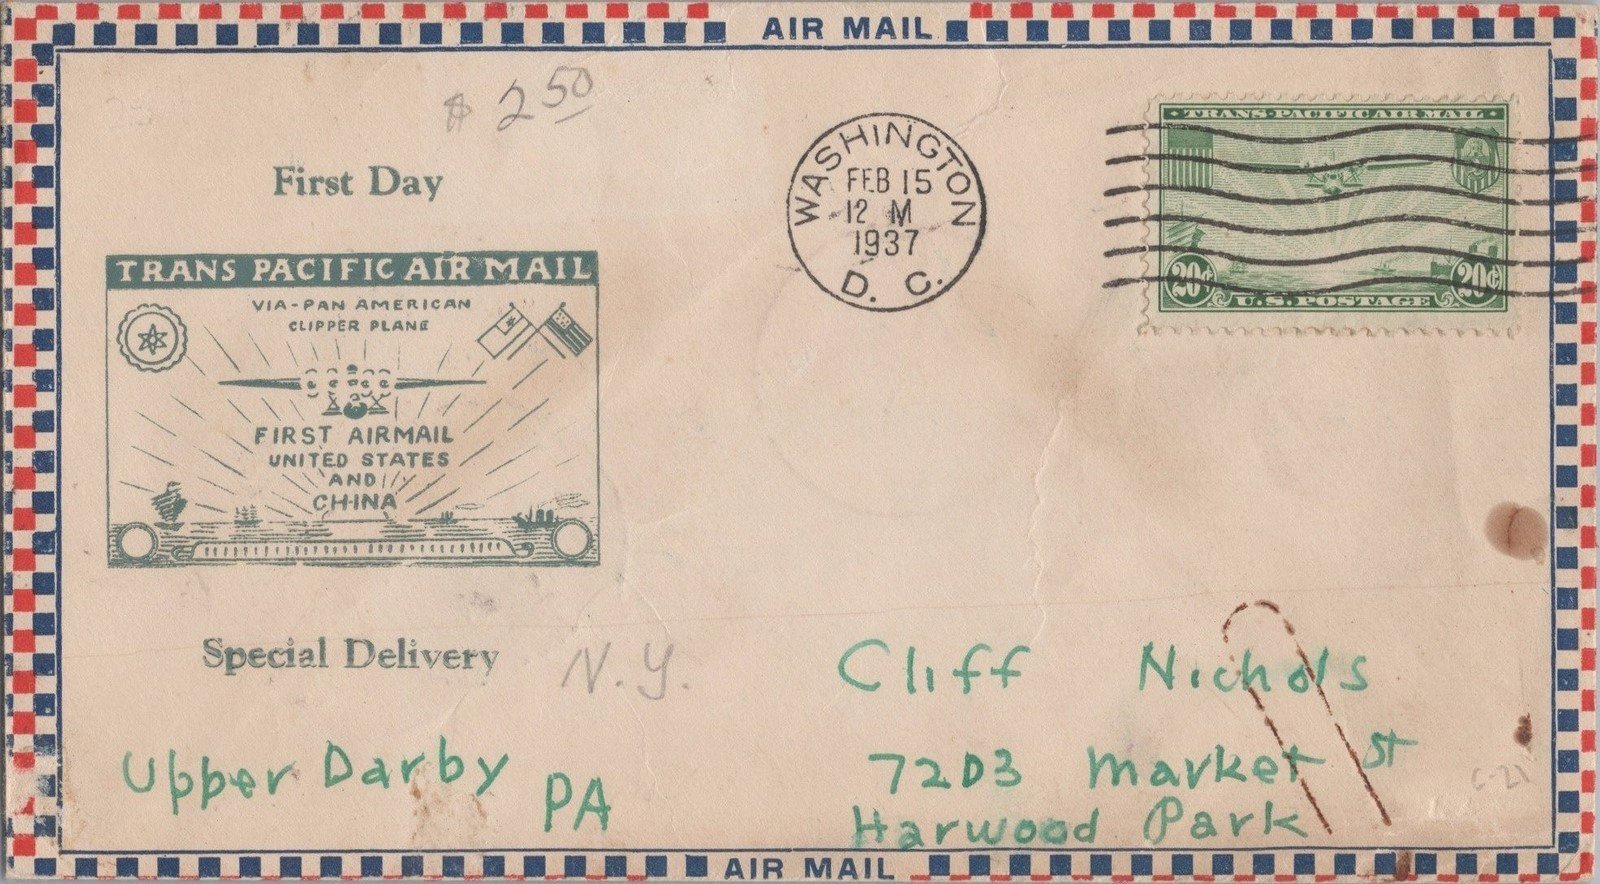 AIR MAIL
$ 2 50
First Day
WASHINGTON
FEB 15
12 M
1937
D. C.
TRANS-PACIFIC AIR MAIL
20¢ 20¢
U.S. POSTAGE
TRANS PACIFIC AIR MAIL
VIA-PAN AMERICAN
CLIPPER PLANE
FIRST AIRMAIL
UNITED STATES
AND
CHINA
Special Delivery
N.Y.
Cliff Nichols
7203 Market St
Harwood Park
Upper Darby
PA
C-21
AIR MAIL